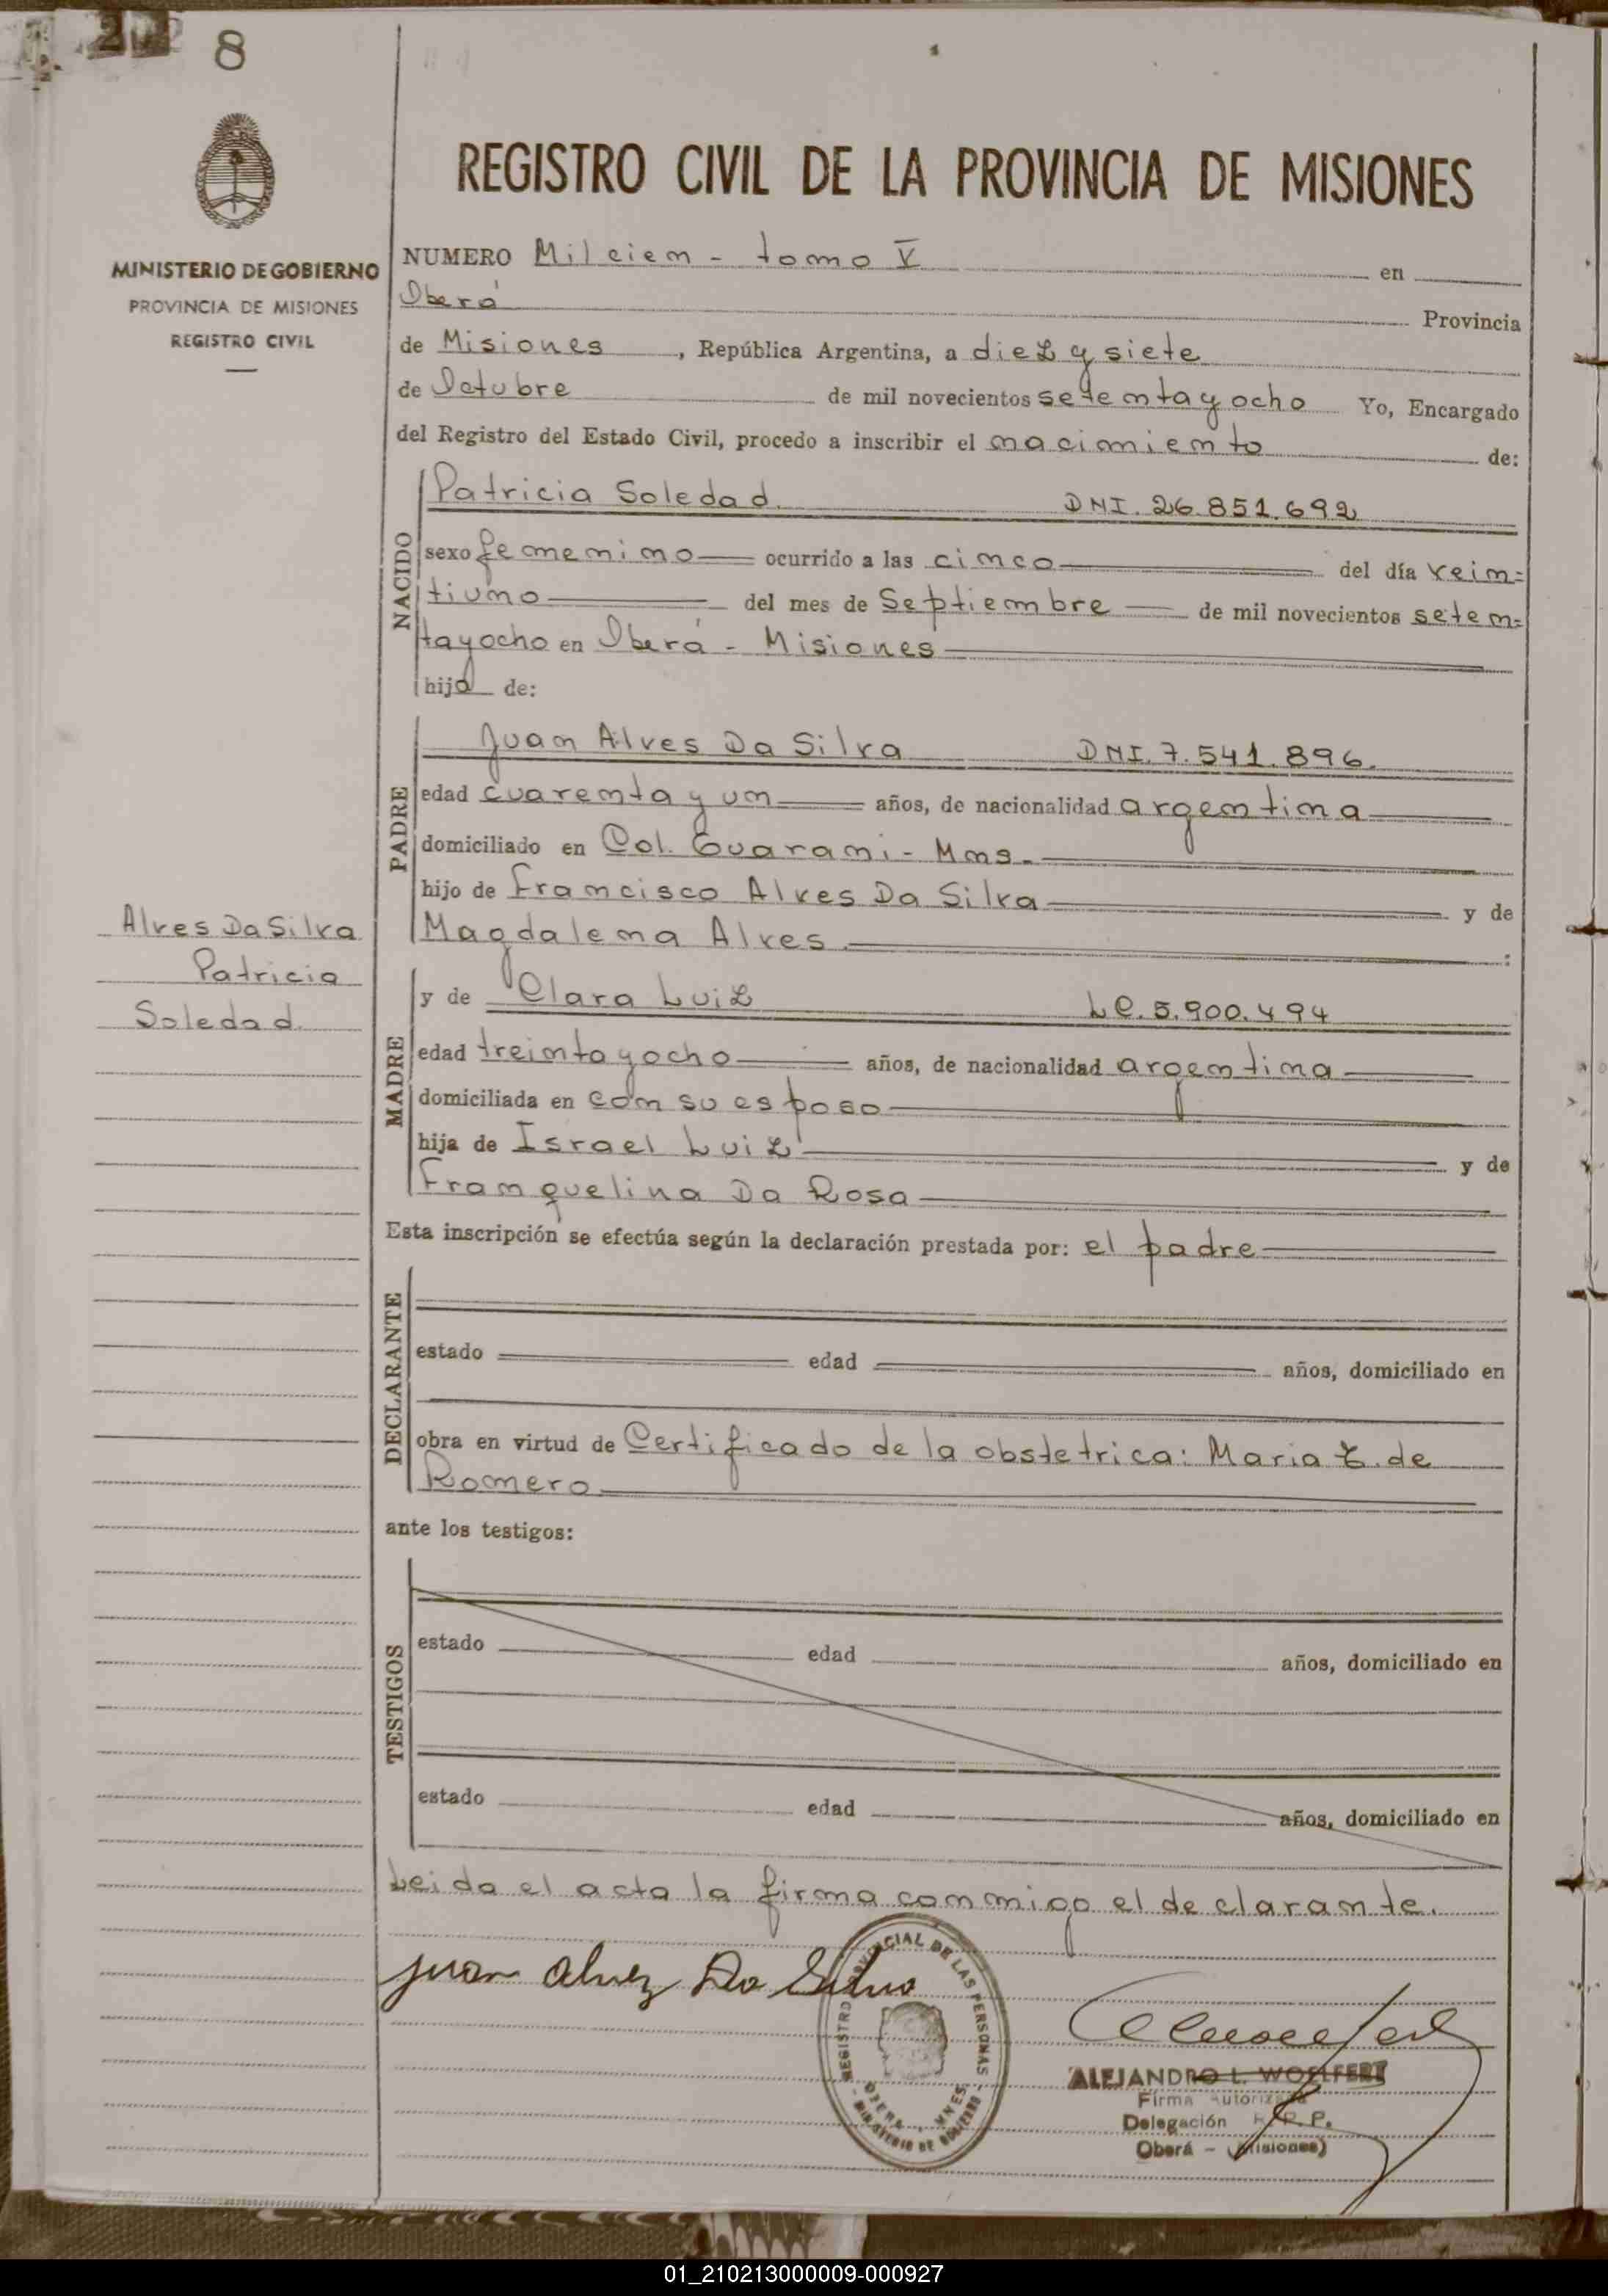 8
REGISTRO CIVIL DE LA PROVINCIA DE MISIONES
MINISTERIO DE GOBIERNO
PROVINCIA DE MISIONES
REGISTRO CIVIL
NUMERO Mil cien - tomo V en
Oberá Provincia
de Misiones, República Argentina, a diez y siete
de Octubre de mil novecientos setenta y ocho Yo, Encargado
del Registro del Estado Civil, procedo a inscribir el nacimiento de:
NACIDO
Patricia Soledad DNI. 26.851.692
sexo femenino ocurrido a las cinco del día vein=
tiuno del mes de Septiembre de mil novecientos seten=
tayocho en Oberá - Misiones
hija de:
PADRE
Juan Alves Da Silva DNI. 7.541.896.
edad cuarenta y un años, de nacionalidad argentina
domiciliado en Col. Guarani - Mns.
hijo de Francisco Alves Da Silva y de
Magdalena Alves :
Alves Da Silva
Patricia
Soledad
MADRE
y de Clara Luiz LC. 5.900.494
edad treinta y ocho años, de nacionalidad argentina
domiciliada en con su esposo
hija de Israel Luiz y de
Franquelina Da Rosa
Esta inscripción se efectúa según la declaración prestada por: el padre
DECLARANTE
estado edad años, domiciliado en
obra en virtud de Certificado de la obstetrica: Maria de
Romero
ante los testigos:
TESTIGOS
estado edad años, domiciliado en
estado edad años, domiciliado en
Leida el acta la firma conmigo el declarante.
Juan Alvez Da Silva
REGISTRO PROVINCIAL DE LAS PERSONAS
OBERA - MNES.
MINISTERIO DE GOBIERNO
ALEJANDRO L. WOELFERT
Firma Autorizada
Delegación R. P. P.
Oberá - (Misiones)
01_210213000009-000927